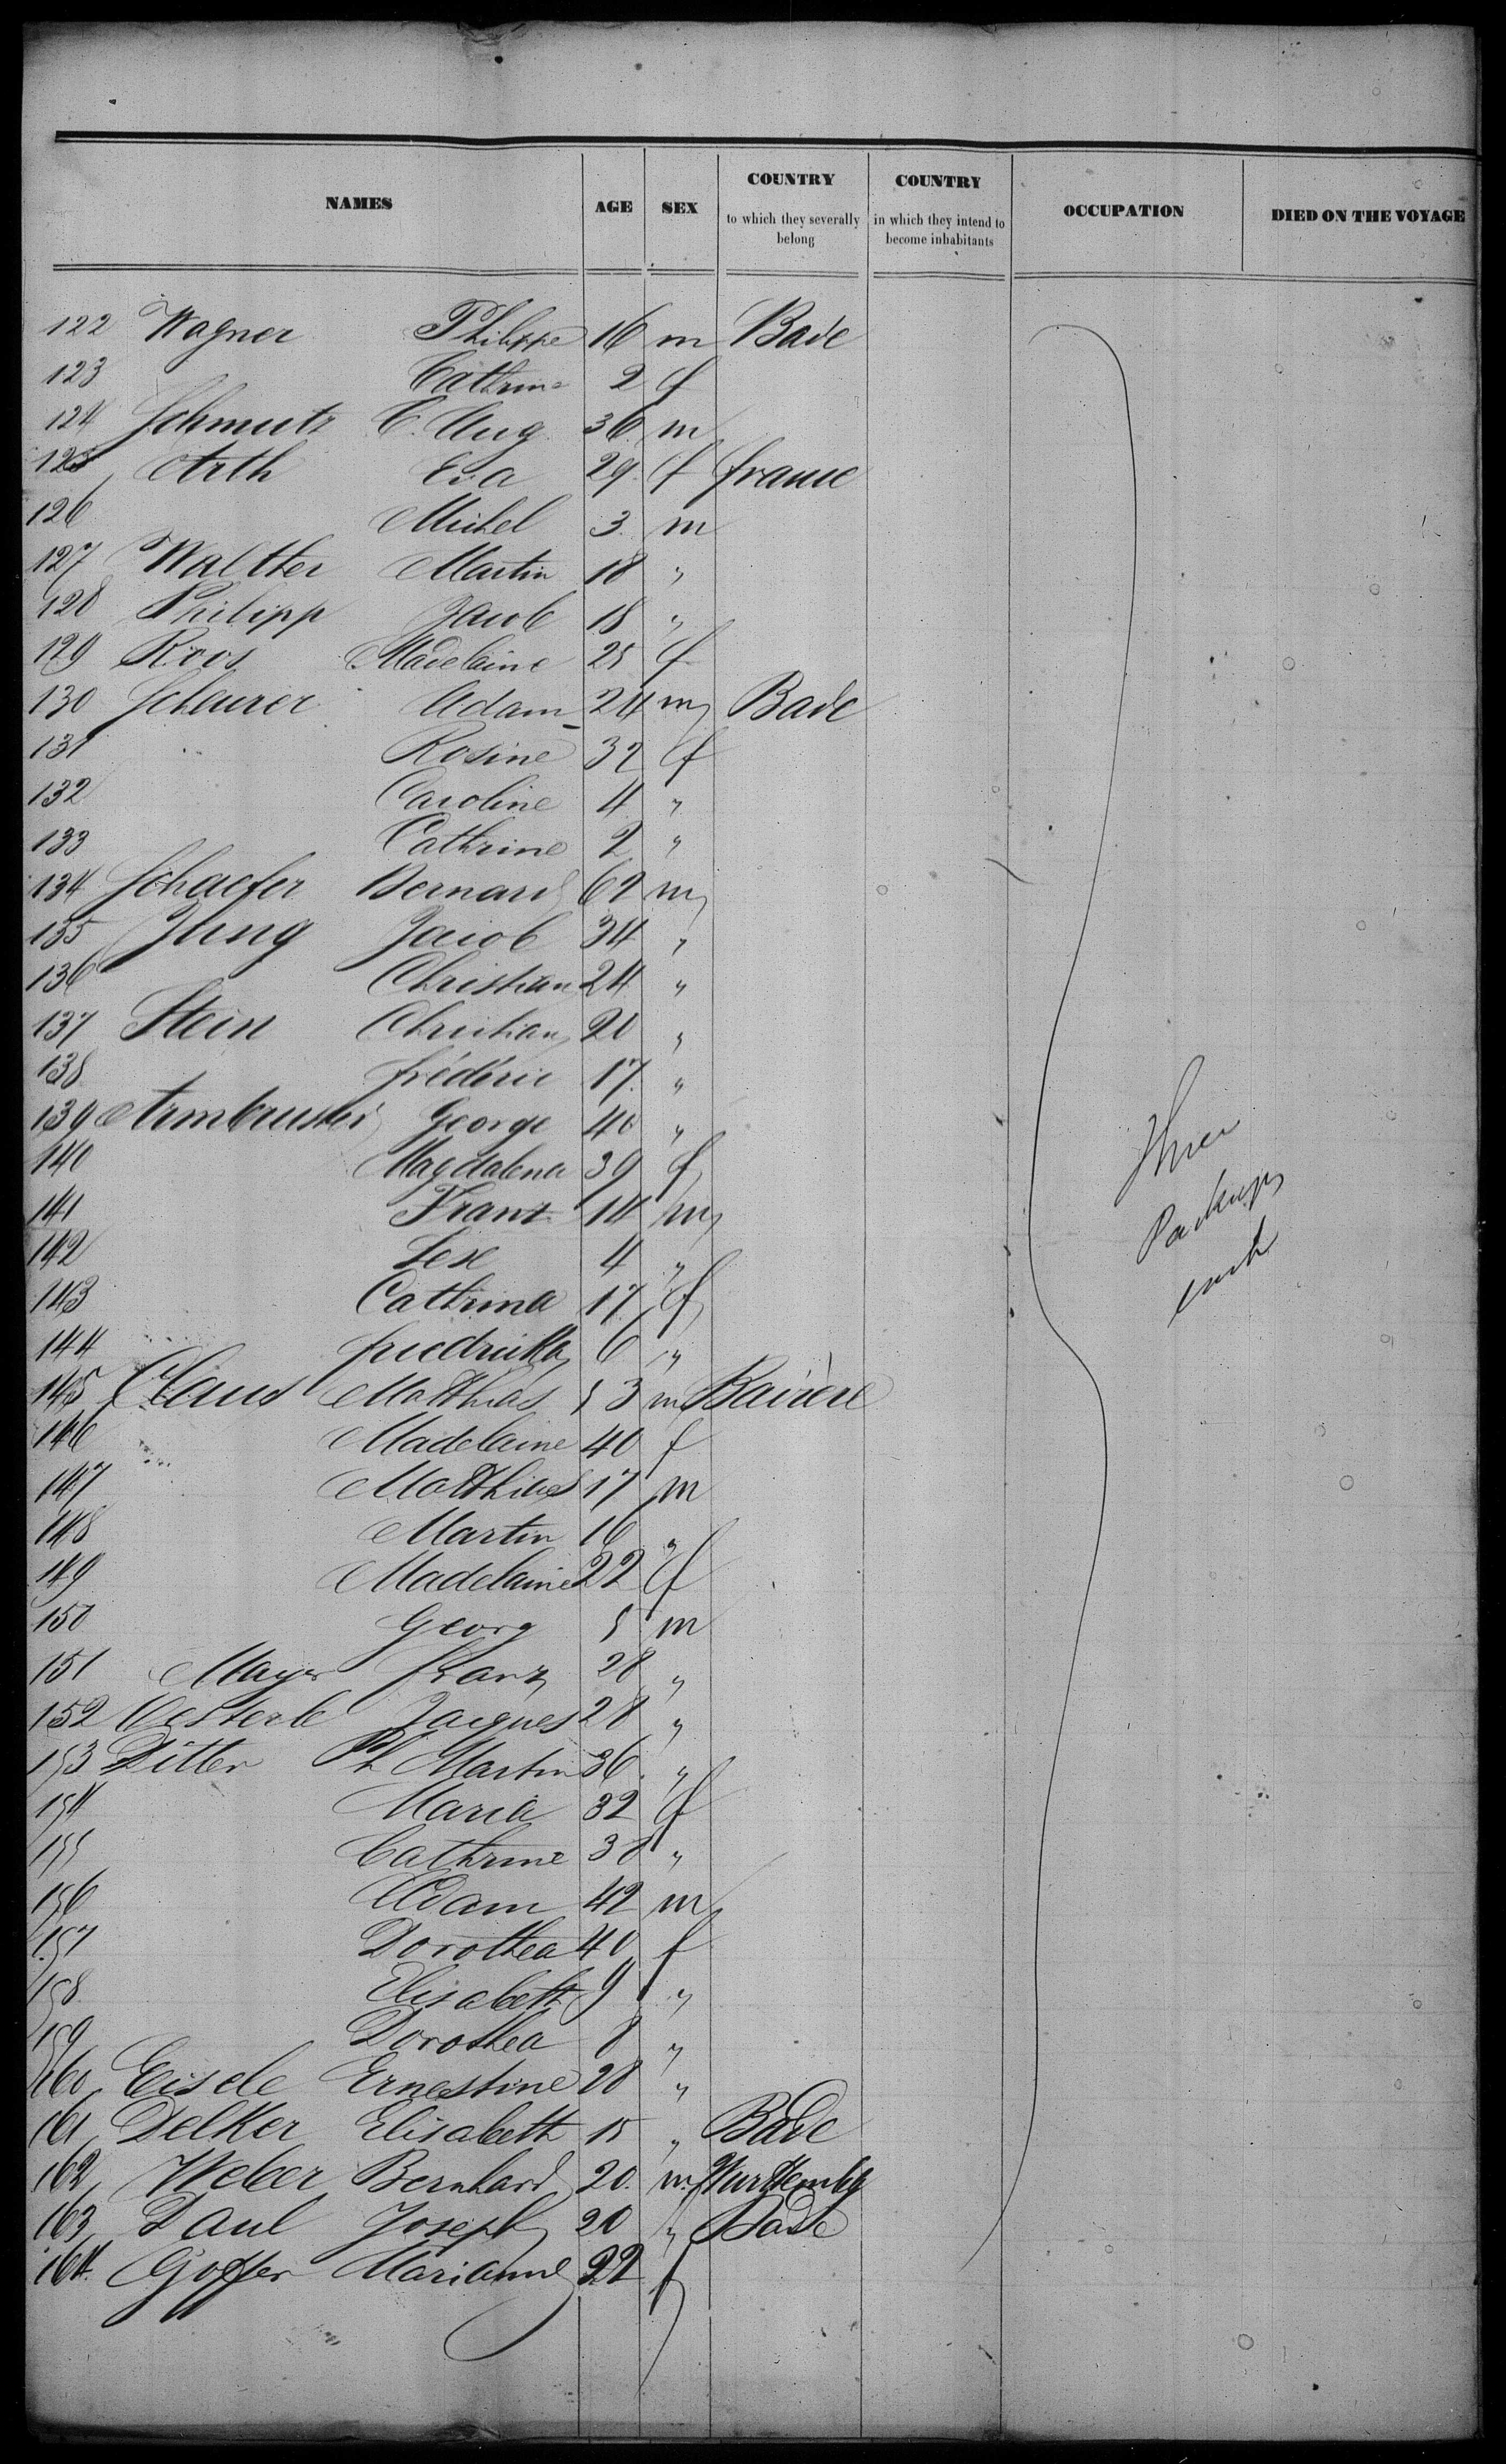 NAMES AGE SEX COUNTRY to which they severally belong COUNTRY in which they intend to become inhabitants OCCUPATION DIED ON THE VOYAGE
122 Wagner Philippe 16 m Bade
123 Cathrine 2 f
124 Schmutz C. Aug. 36 m
125 Arth Eva 29 f france
126 Michel 3 m
127 Walther Martin 18 "
128 Philipp Jacob 18 "
129 Roos Madelaine 25 f
130 Schaurer Adam 24 m Bade
131 Rosine 32 f
132 Caroline 4 "
133 Cathrine 2 "
134 Schaefer Bernard 62 m
135 Jung Jacob 34 "
136 Christian 24 "
137 Stein Christian 20 "
138 frédéric 17 "
139 Armbruster George 40 "
140 Magdalena 39 f
141 Franz 14 m
142 4 "
143 Cathrina 17 f
144 friedricka 6 "
145 Claus Matthias 53 m Baviere
146 Madelaine 40 f
147 Matthias 17 m
148 Martin 16 "
149 Madelaine 22 f
150 Georg 5 m
151 Mayer franz 28 "
152 Oesterle Jacques 28 "
153 Ditter Ph Martin 36 "
154 Maria 32 f
155 Cathrine 38 "
156 Adam 42 m
157 Dorothea 40 f
158 Elisabeth 9 "
159 Dorothea 8 "
160 Eisele Ernestine 28 "
161 Delker Elisabeth 15 " Bade
162 Weber Bernhard 20 m Wurttembg
163 Paul Joseph 20 " Bade
164 Marianne 22 f
Three
Packages
each